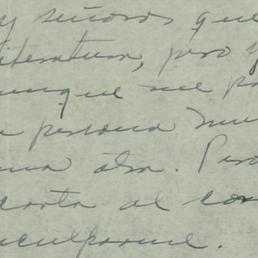 y señores que
literatura, pero y
unque me pa
a persona mu
una otra. Pero
carta al cor
nculparme.